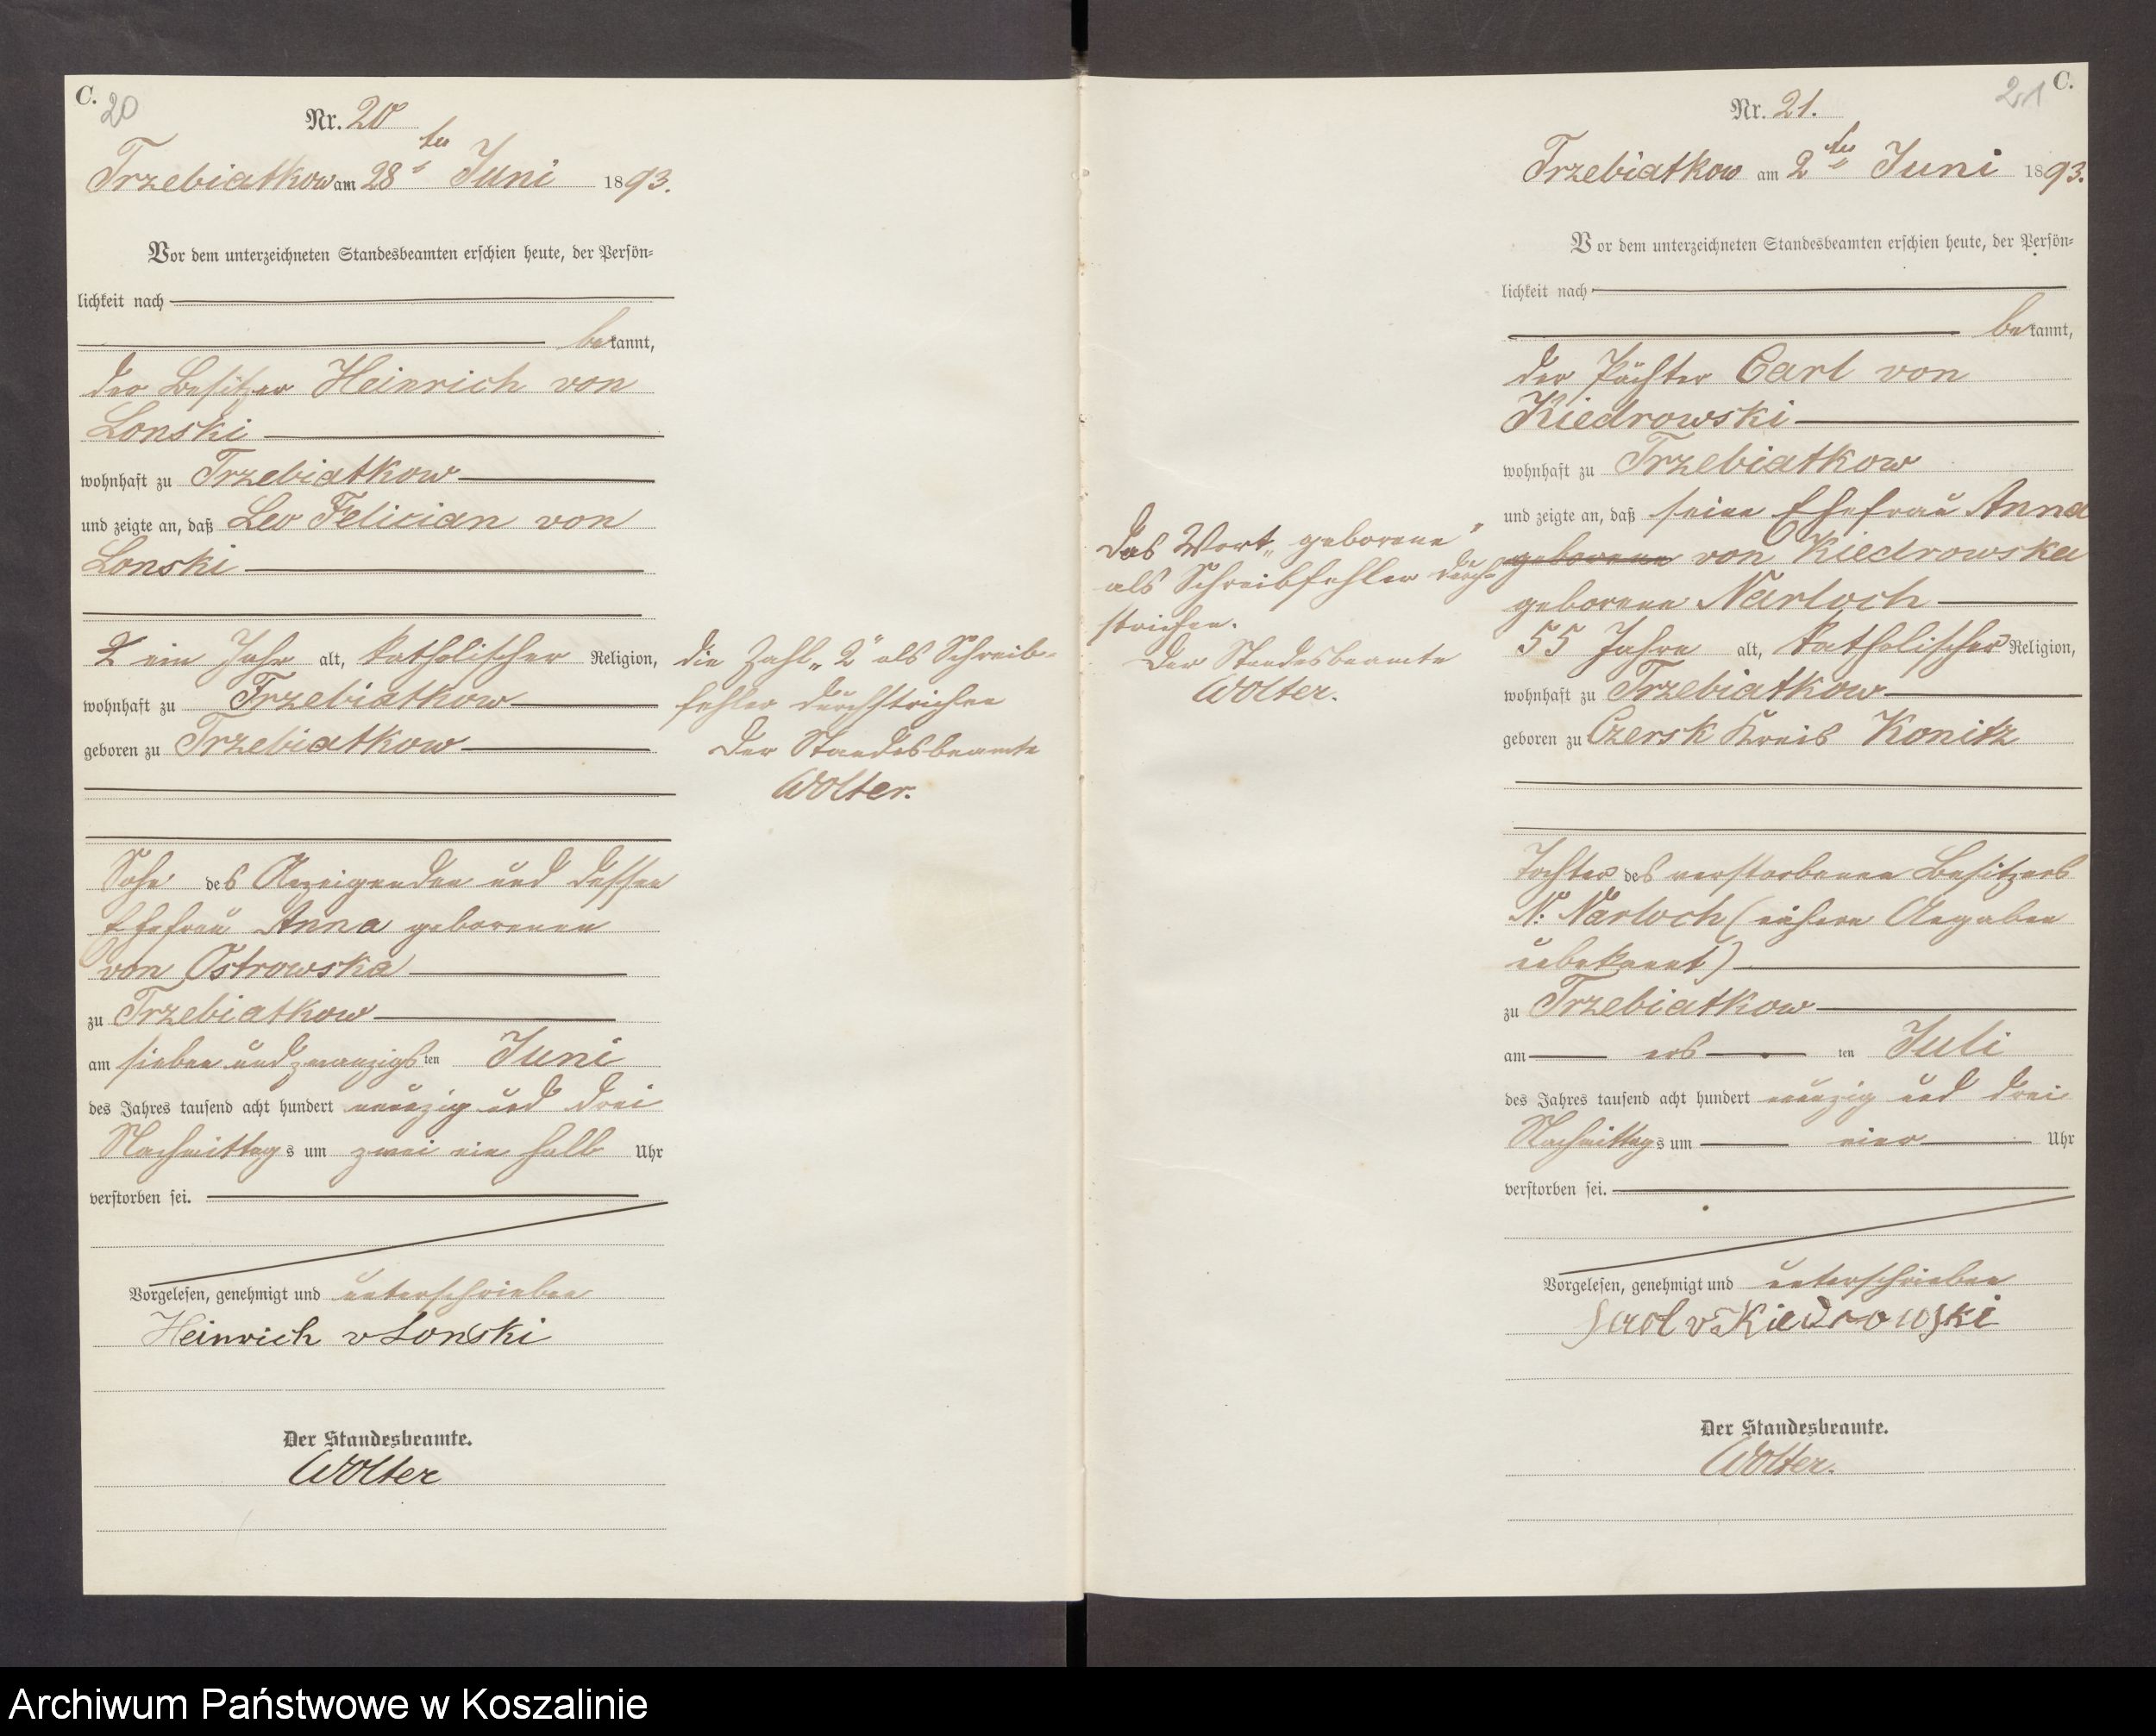 C.
20
Nr. 20
Trzebiatkow am 28ten Juni 1893.
Vor dem unterzeichneten Standesbeamten erschien heute, der Persön-
lichkeit nach
bekannt,
der Besitzer Heinrich von
Lonski
wohnhaft zu Trzebiatkow
und zeigte an, daß Leo Felician von
Lonski
2 ein Jahr alt, katholischer Religion,
wohnhaft zu Trzebiatkow
geboren zu Trzebiatkow
Sohn des Anzeigenden und dessen
Ehefrau Anna geborenen
von Ostrowska
zu Trzebiatkow
am sieben und zwanzigsten Juni
des Jahres tausend acht hundert neunzig und drei
Nachmittags um zwei ein halb Uhr
verstorben sei.
Vorgelesen, genehmigt und unterschrieben
Heinrich v Lonski
Der Standesbeamte.
Wolter
die Zahl „2" als Schreib-
fehler durchstrichen
Der Standesbeamte
Wolter.
21
C.
Nr. 21.
Trzebiatkow am 2ten Juni 1893.
Vor dem unterzeichneten Standesbeamten erschien heute, der Persön-
lichkeit nach
bekannt,
der Pächter Carl von
Kiedrowski
wohnhaft zu Trzebiatkow
und zeigte an, daß seine Ehefrau Anna
geborene von Kiedrowska
geborene Narloch
55 Jahre alt, katholischer Religion,
wohnhaft zu Trzebiatkow
geboren zu Czersk Kreis Konitz
Tochter des verstorbenen Besitzers
N. Narloch (nähere Angaben
unbekannt)
zu Trzebiatkow
am ersten Juli
des Jahres tausend acht hundert neunzig und drei
Nachmittags um vier Uhr
verstorben sei.
Vorgelesen, genehmigt und unterschrieben
Karol v Kiedrowski
Der Standesbeamte.
Wolter.
Das Wort „geborene"
als Schreibfehler durch-
strichen.
Der Standesbeamte
Wolter.
Archiwum Państwowe w Koszalinie